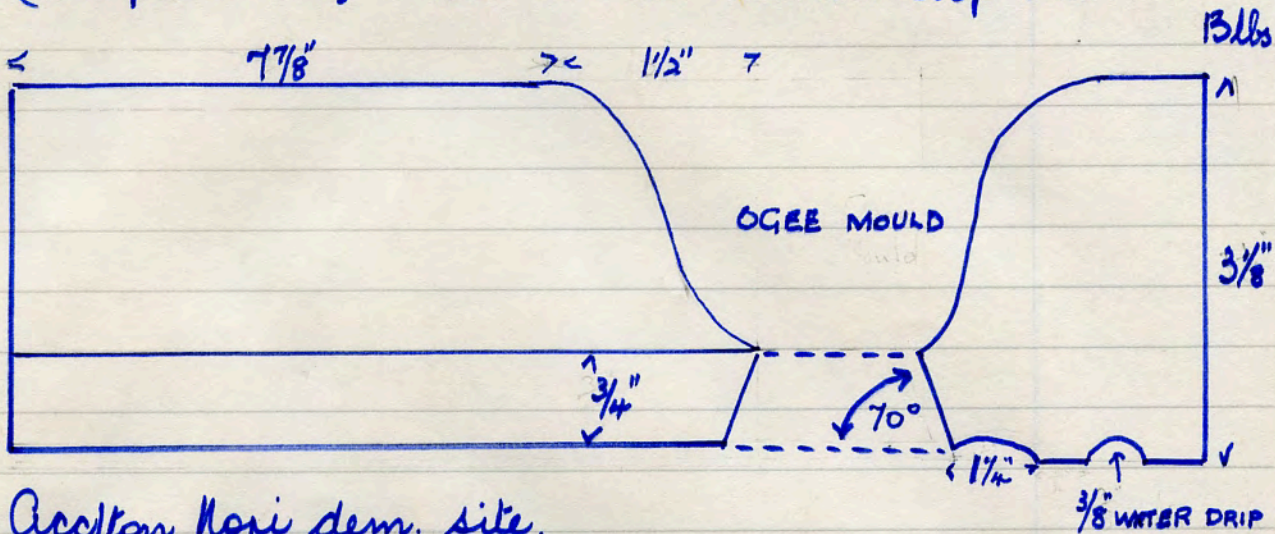 13 lbs
< 7 7/8" >< 1 1/2" >
OGEE MOULD
3 1/8"
3/4"
70°
< 1 1/4" >
3/8" WATER DRIP
Accrton Nori dem. site.